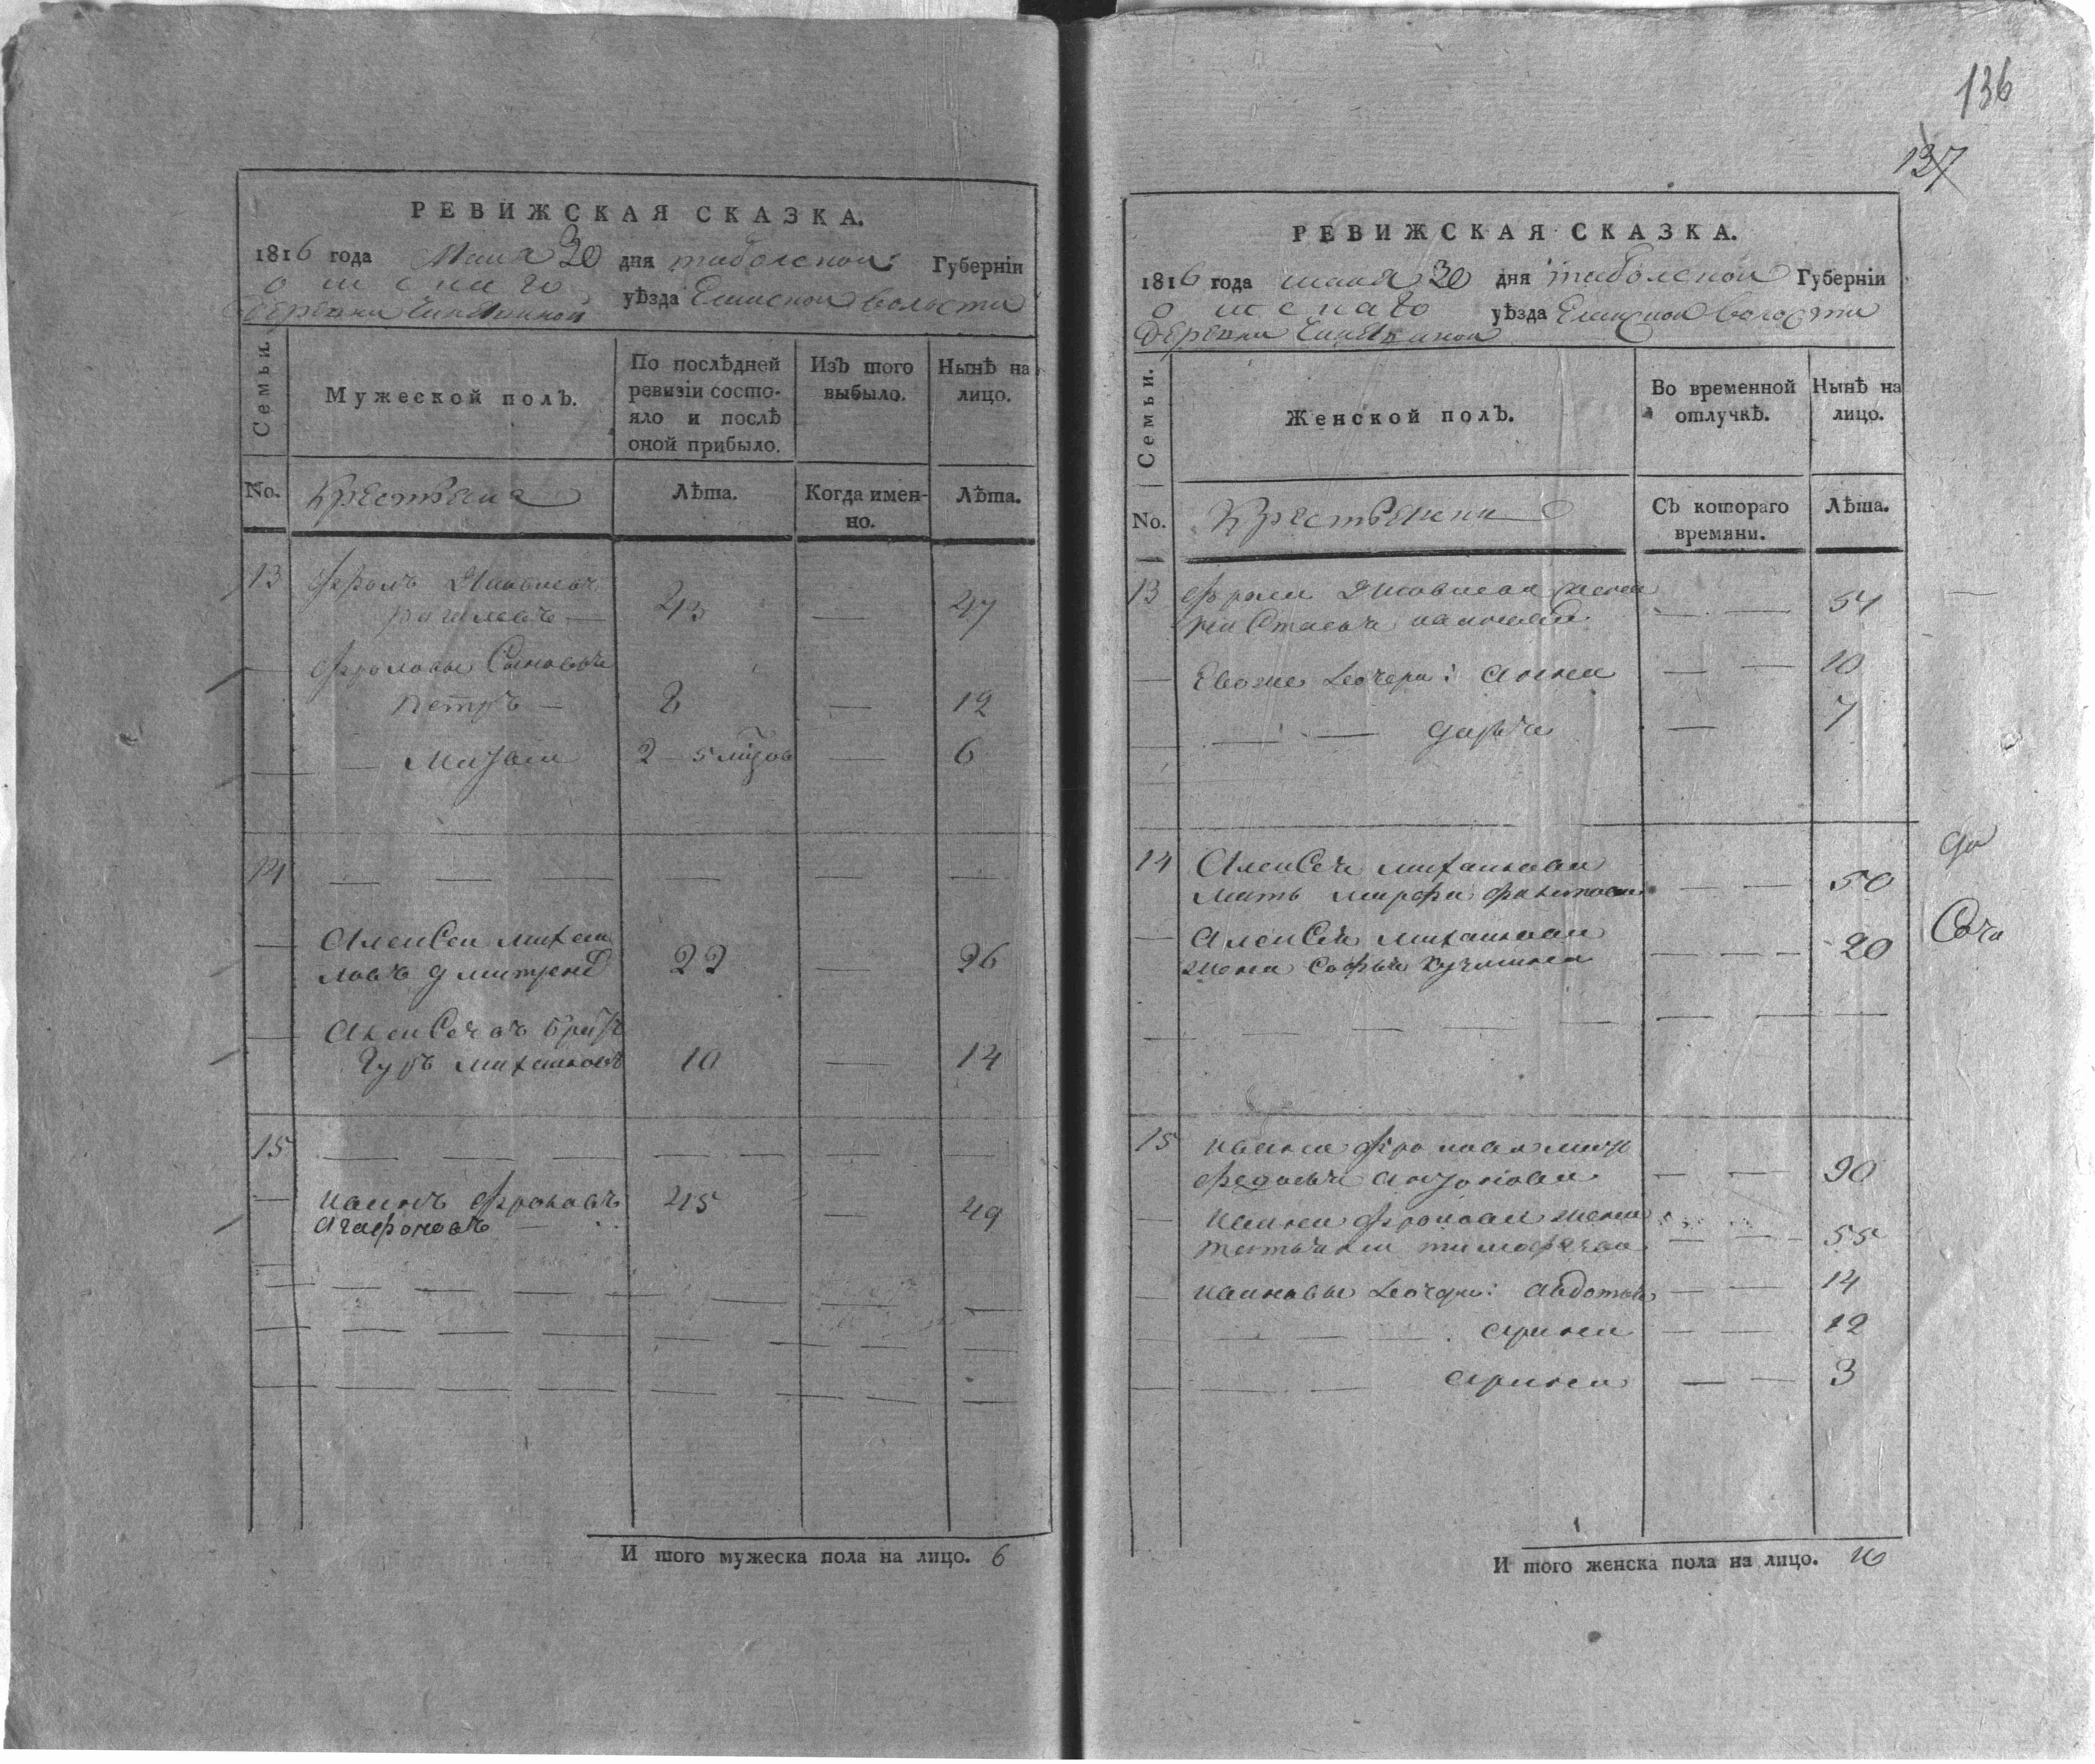 136
137
РЕВИЖСКАЯ СКАЗКА.
1816 года Маия 30 дня таболской Губернїи
омскаго уѣзда Еланской волости
деревни
Семьи.
Мужеской полъ.
По послѣдней
ревизїи состо-
яло и послѣ
оной прибыло.
Изъ того
выбыло.
Нынѣ на
лицо.
No.
Крестьяна
Лѣта.
Когда имен-
но.
Лѣта.
13 Фролъ
43 — 47
Фроловы Сыновья
Петръ — 8 — 12
Матвей 2 — 6
14
Алексеи михаи
ловъ 22 — 26
Алексеевъ братъ
Гуръ михаиловъ 10 — 14
15
иванъ Фроловъ 45 — 49
Агафоновъ
И того мужеска пола на лицо. 6
РЕВИЖСКАЯ СКАЗКА.
1816 года маия 30 дня таболской Губернїи
омскаго уѣзда Еланской волости
Деревни
Семьи.
Женской полъ.
Во временной
отлучкѣ.
Нынѣ на
лицо.
No.
Крестьянки
Съ котораго
времяни.
Лѣта.
13 Фрола жена
54
Евоже дочери: Анна — — 10
дарья — 7
14 Алексея михаилова
мать марфа — — 50
Алексея михаилова
жена Софья — — 20
15 ивана Фролова мать
Федосья антонова — — 90
ивана Фролова жена
татьяна тимофеева — — 55
ивановы дочери: авдотья — — 14
арина — — 12
арина — — 3
И того женска пола на лицо. 10